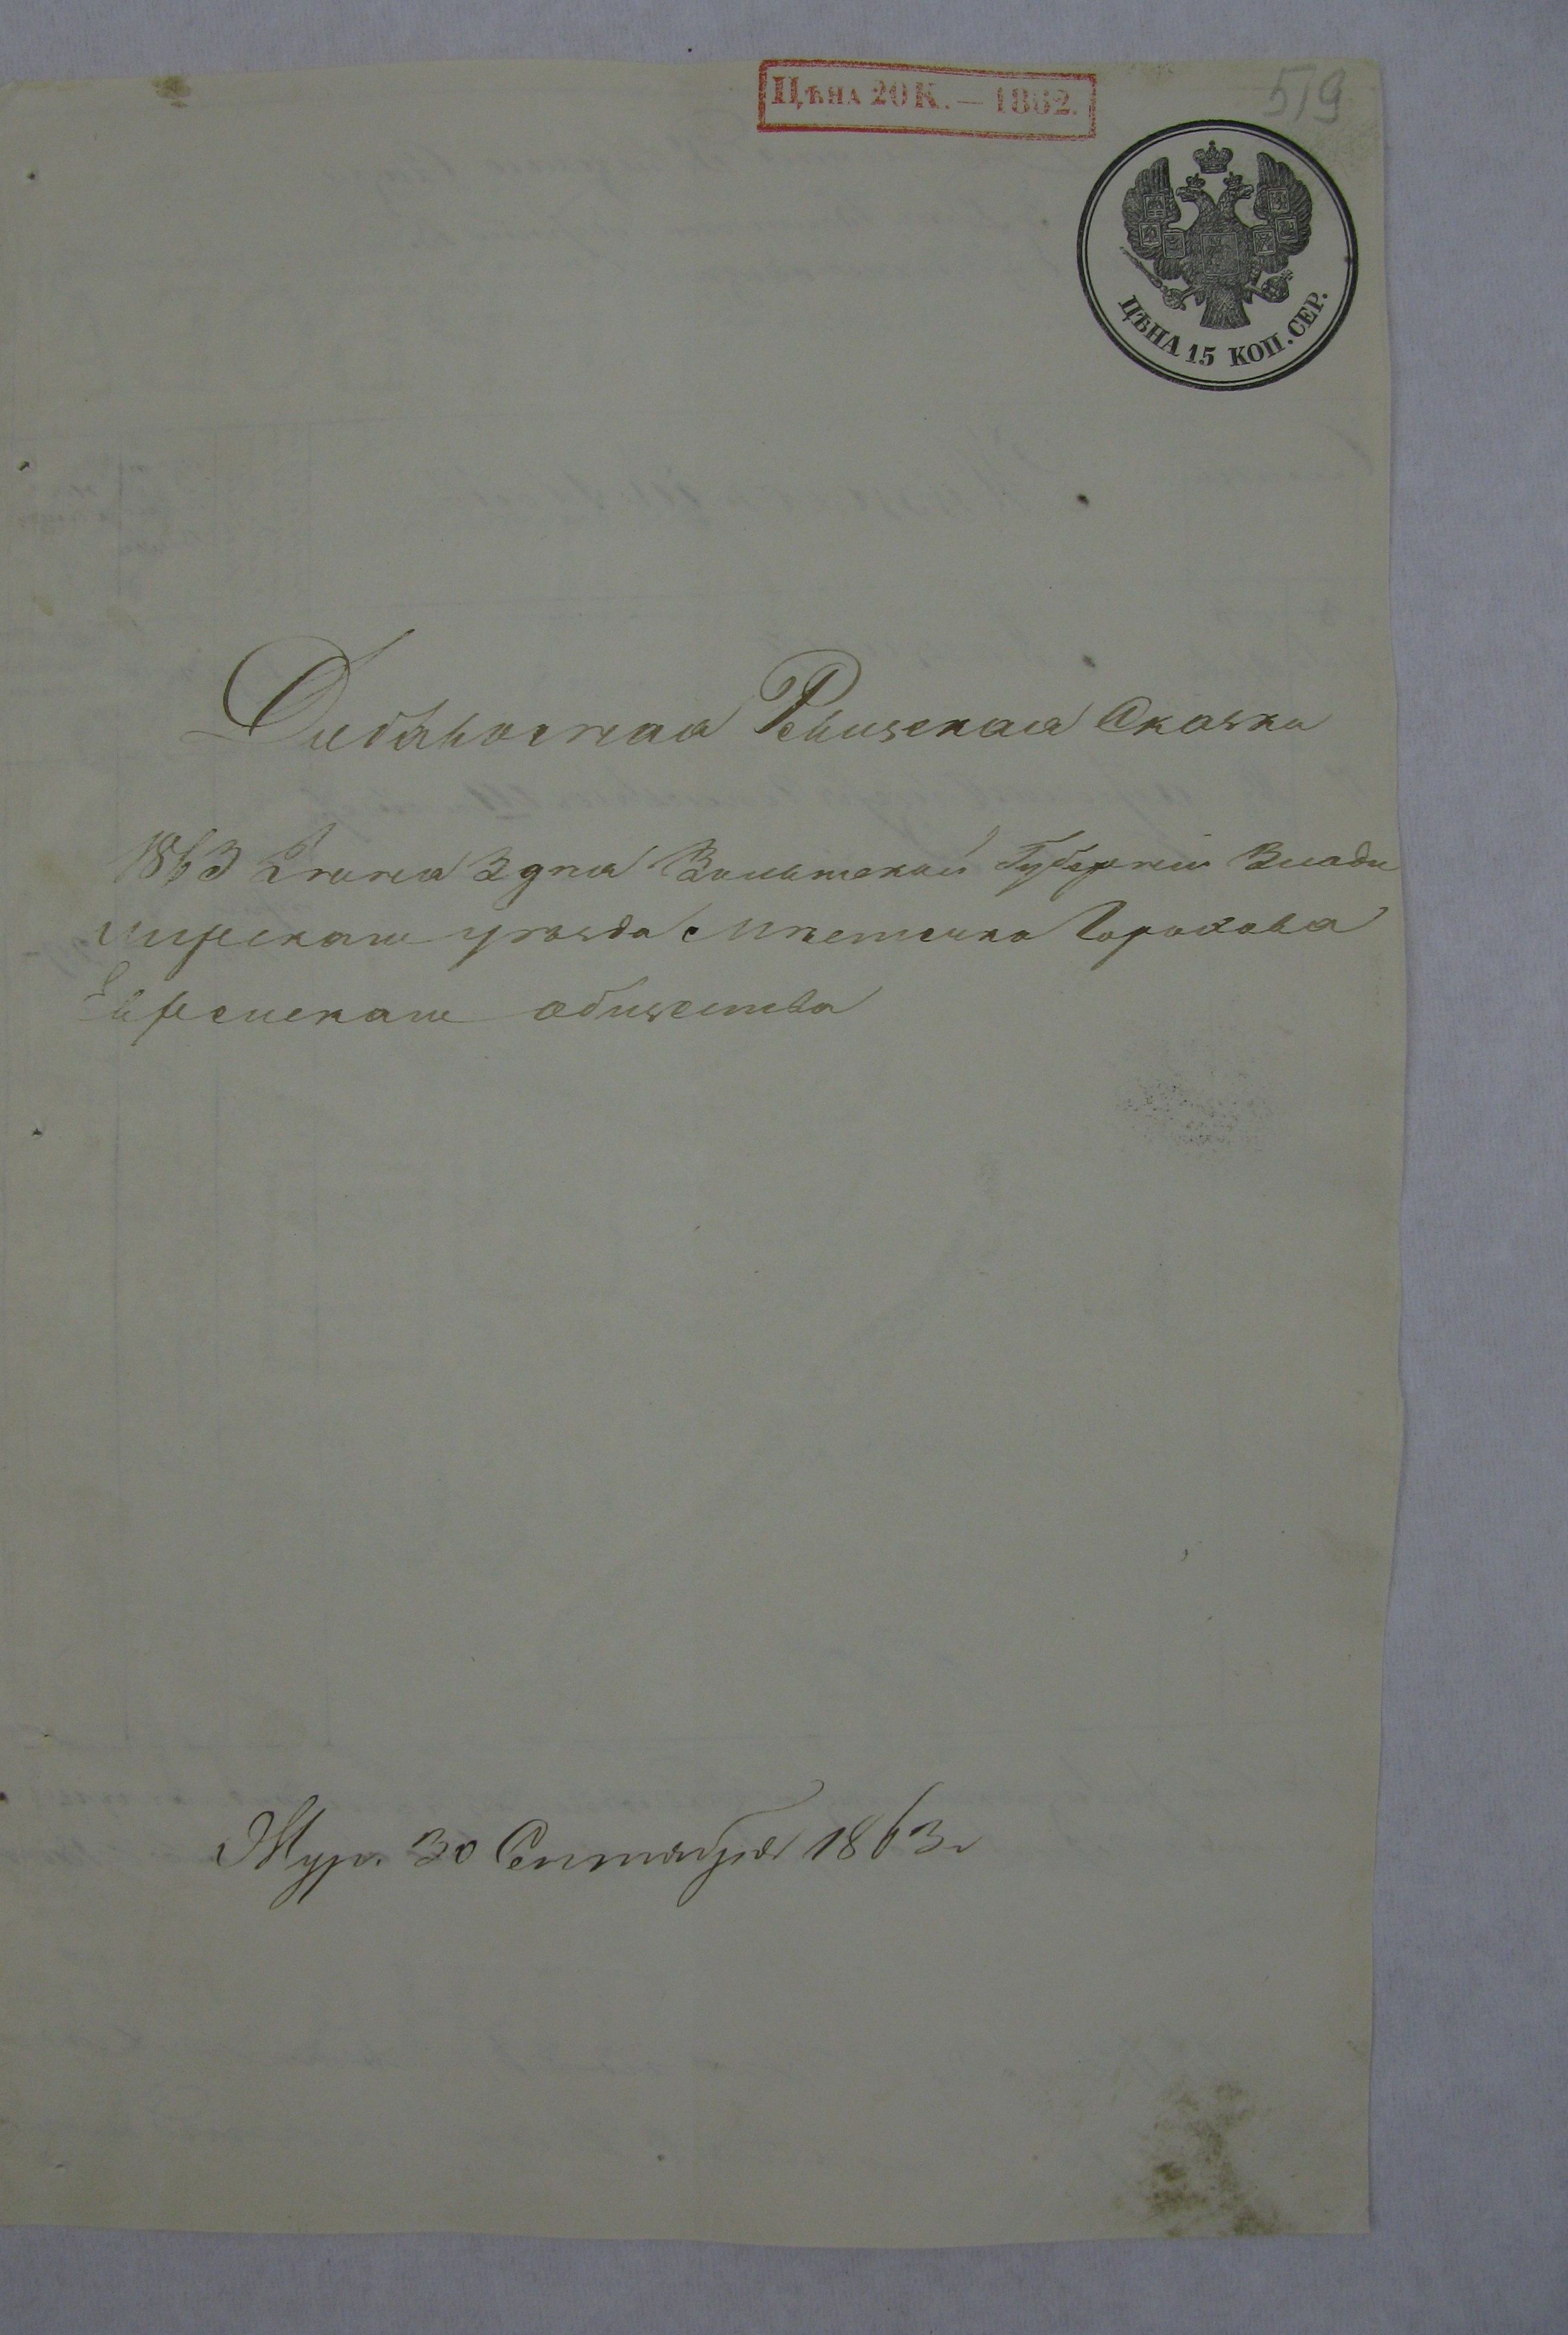 Цѣна 20 К. — 1862.
519
ЦѢНА 15 КОП. СЕР.
Добавочная Ревизская Сказка
1863 Іюня 3 дня Волынской Губерніи Влади
мірскаго уѣзда Мѣстечка Горохова
Еврейскаго общества
Жур. 30 Сентября 1863 г